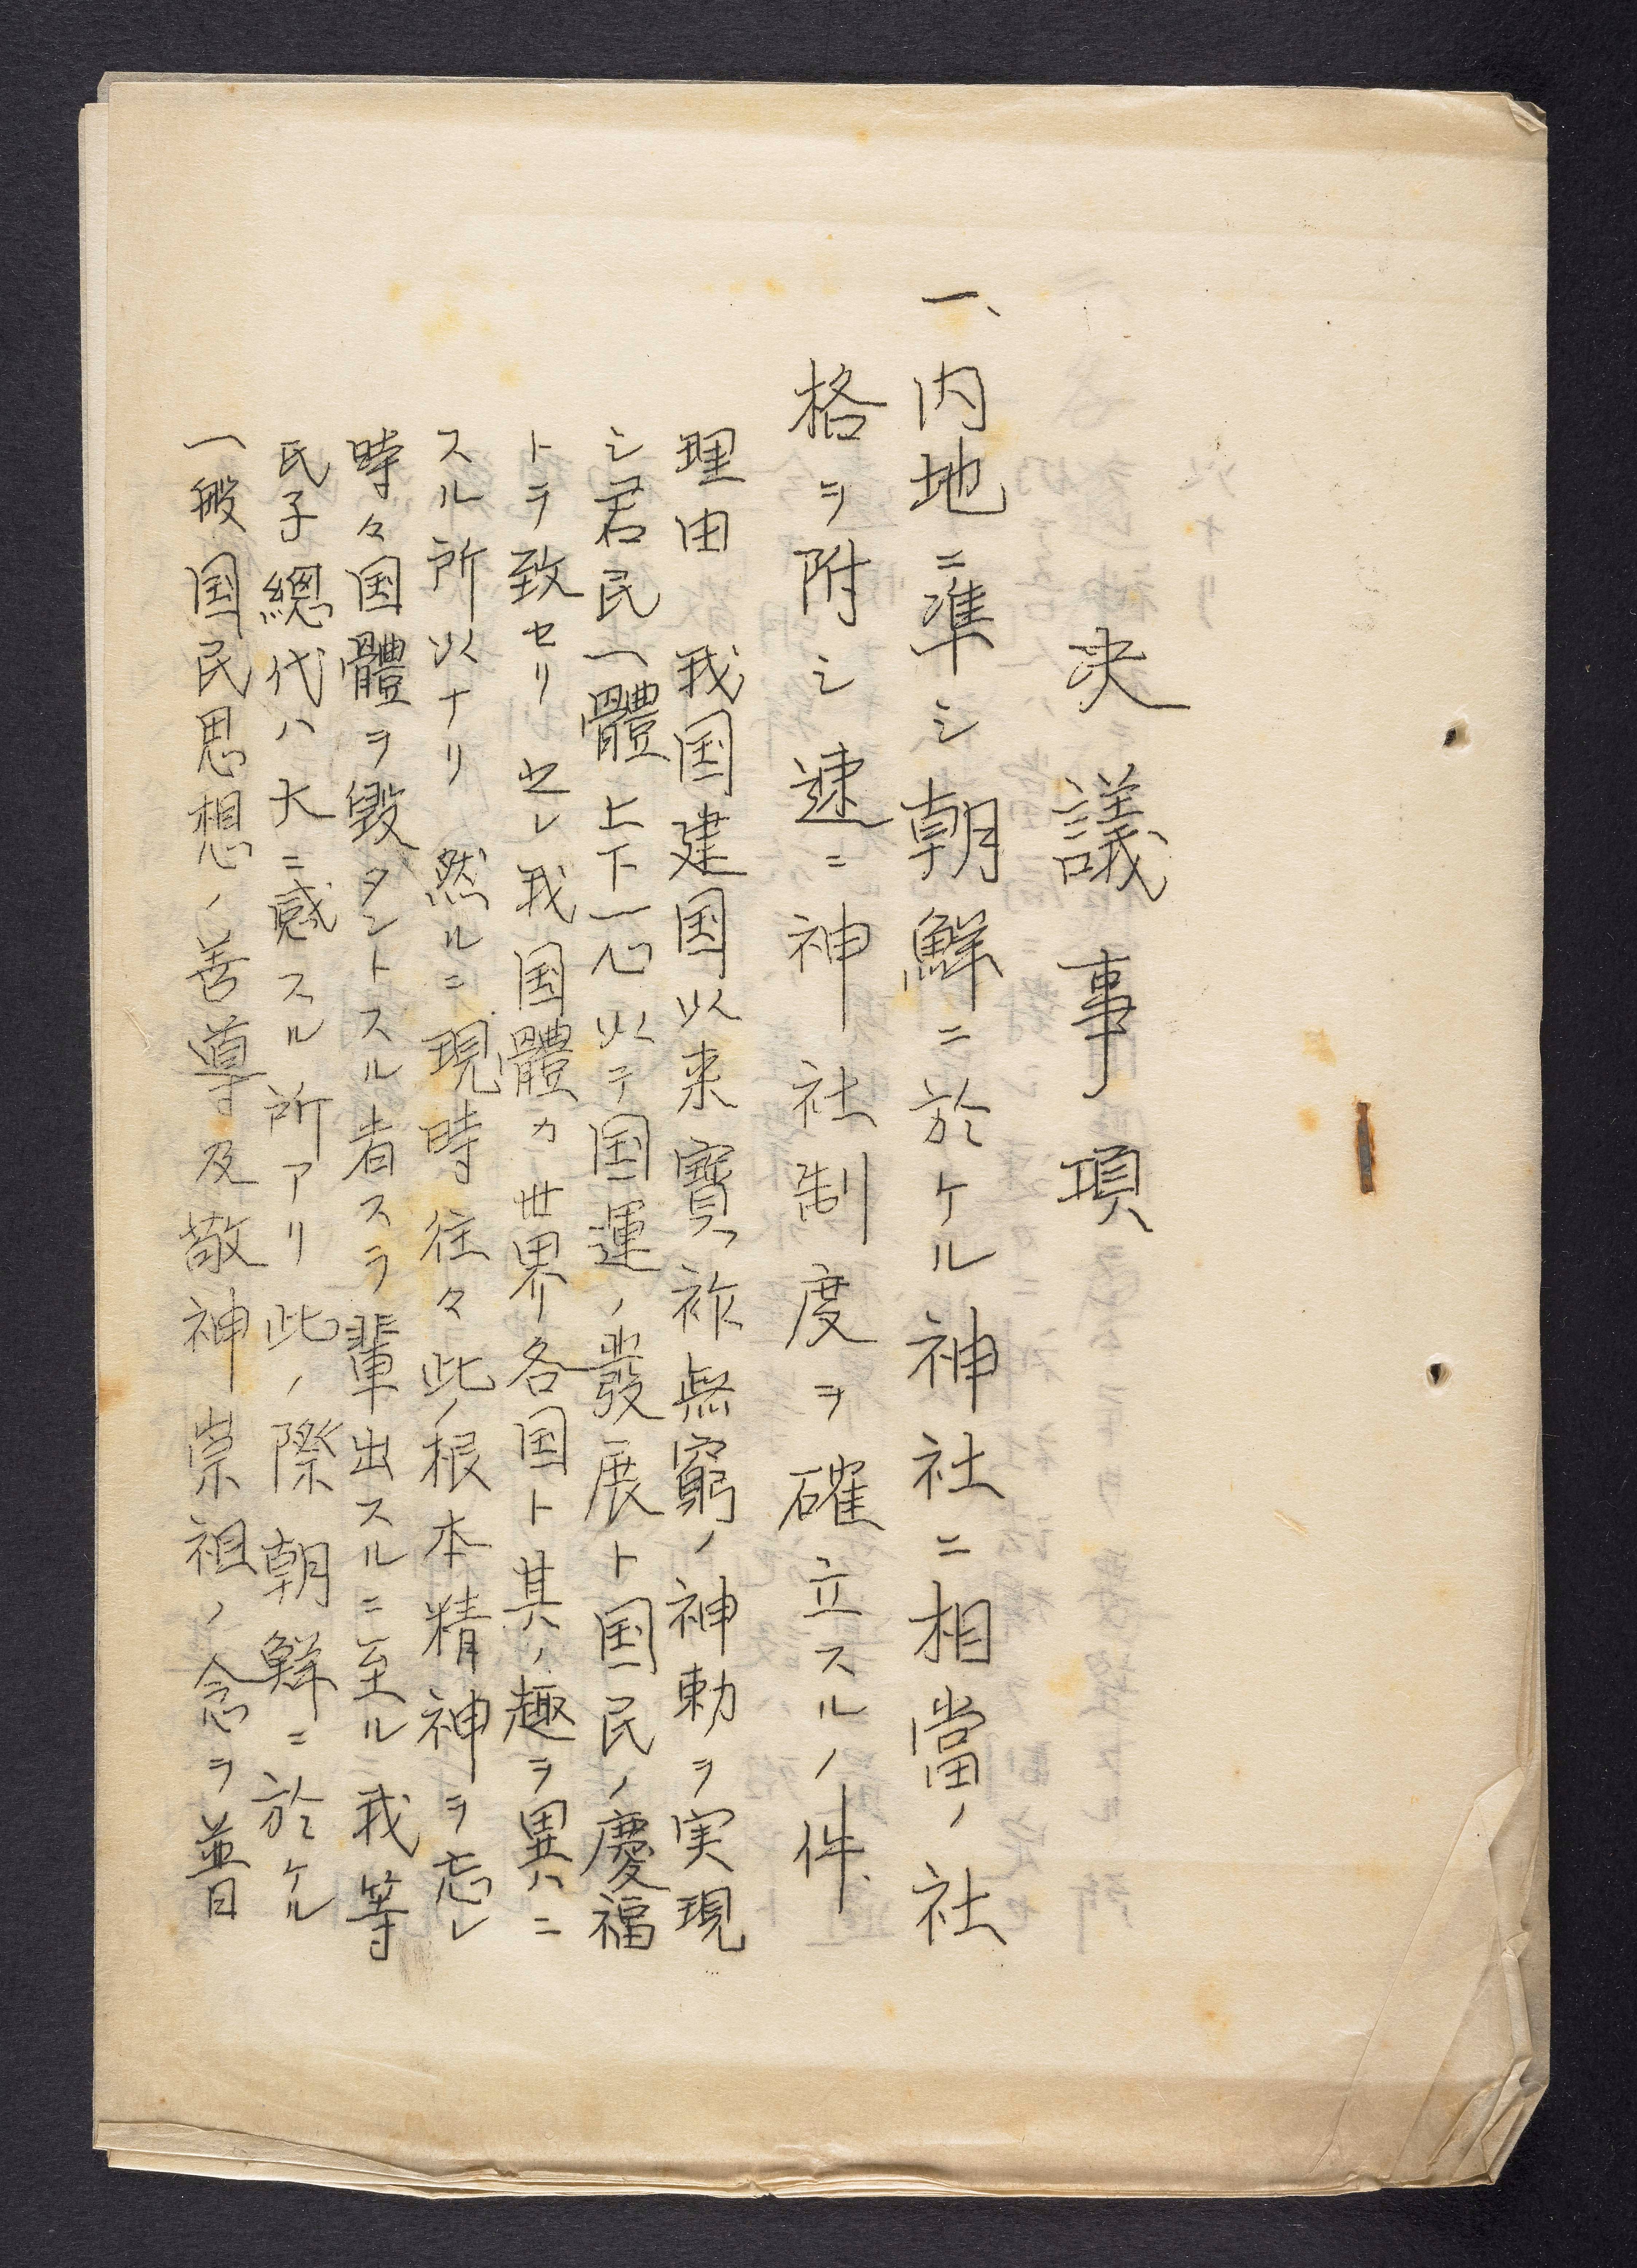 决議事項
一、内地ニ準シ朝鮮ニ於ケル神社ニ相當ノ社
格ヲ附シ速ニ神社制度ヲ確立スルノ件、
理由 我国建国以来寶祚無窮ノ神勅ヲ実現
シ君民一體上下一心以テ国運ノ發展ト国民ノ慶福
トヲ致セリ之レ我国體カ世界各国ト其ノ趣ヲ異ハニ
スル所以ナリ 然ルニ現時往々此ノ根本精神ヲ忘レ
時々国體ヲ毀タントスル者スラ輩出スルニ至ル我等
氏子總代ハ大ニ感スル所アリ此ノ際朝鮮ニ於ケル
一般国民思想ノ善導及敬神崇祖ノ念ヲ普